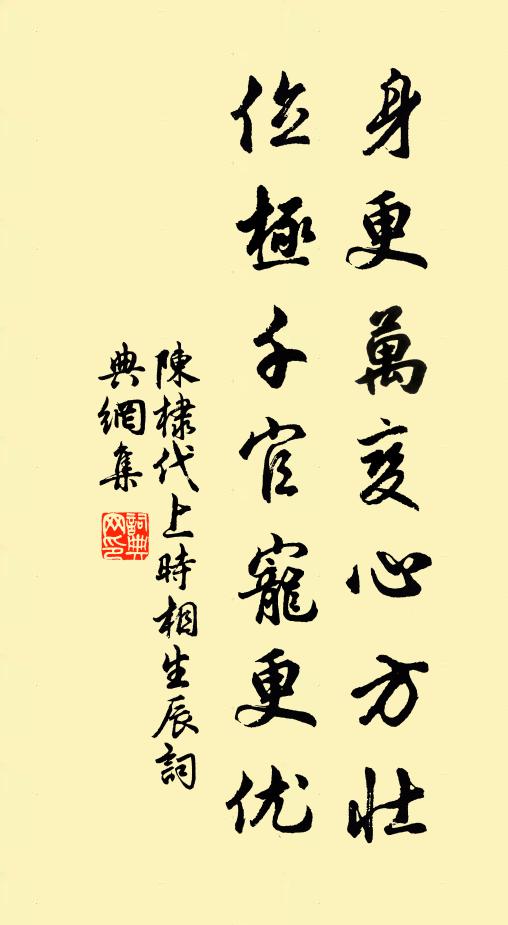 身更萬变心方壮
位極千官寵更优
陳棣代上時相生辰詞
典網集
詞典網印